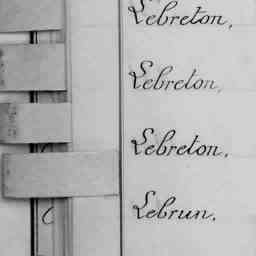 Lebreton,
Lebreton,
Lebreton,
Lebrun,